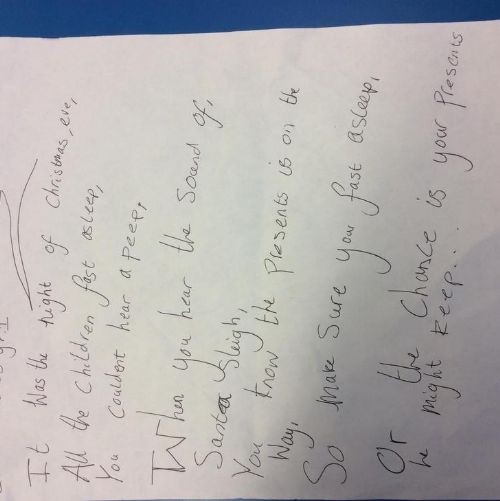 It Was the night of christmas, eve,
All the children fast asleep,
You Couldent hear a peep,
When you hear the Sound of,
Santa Sleigh,
You know the Presents is on the
Way,
So make Sure your fast asleep,
Or the Chance is your Presents
he might keep...